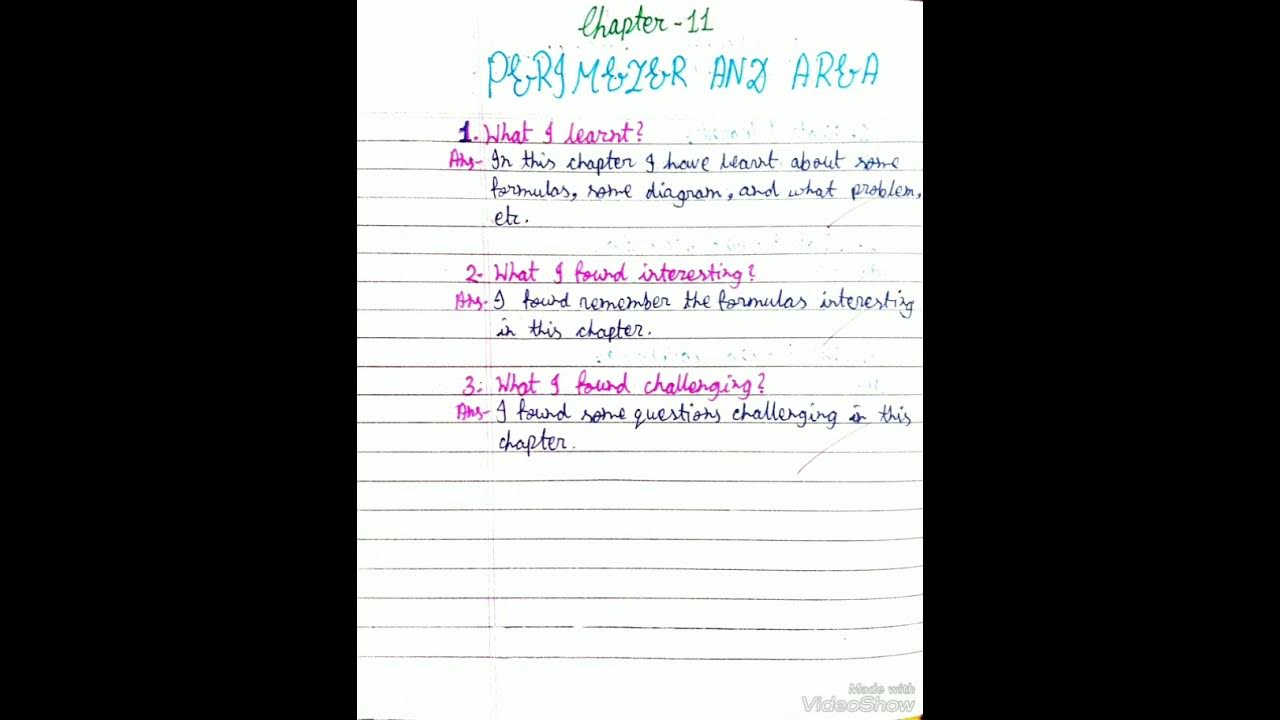 Chapter-11
PERIMETER AND AREA
1. What I learnt?
Ans- In this chapter I have learnt about some
formulas, some diagram, and what problem,
etc.
2- What I found interesting?
Ans- I found remember the formulas interesting
in this chapter.
3. What I found challenging?
Ans- I found some questions challenging in this
chapter.
Made with
VideoShow